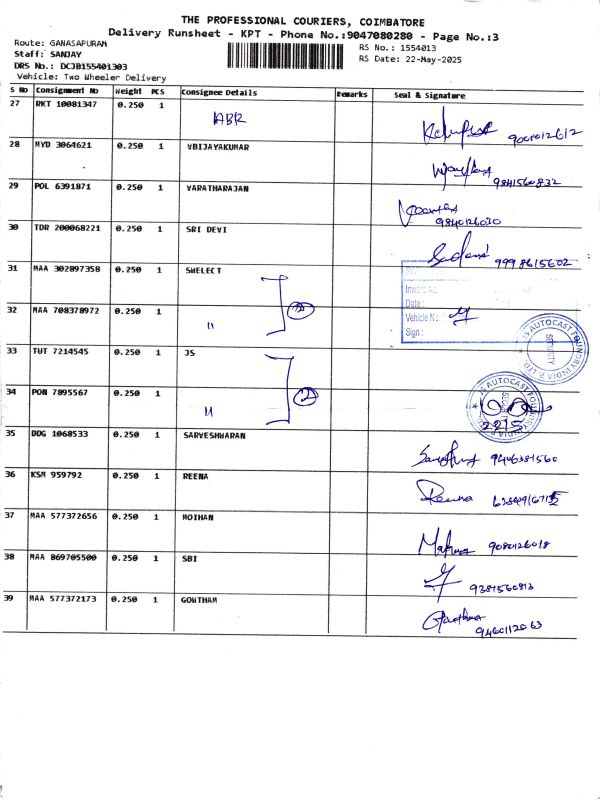 THE PROFESSIONAL COURIERS, COIMBATORE
Delivery Runsheet - KPT - Phone No.:9047080280 - Page No.:3
Route: GANASAPURAM
RS No.: 1554013
Staff: SANJAY
RS Date: 22-May-2025
DRS No.: DCJB155401303
Vehicle: Two Wheeler Delivery
S No Consignment No Weight PCS Consignee Details Remarks Seal & Signature
27 RKT 10081347 0.250 1 ABR
28 MYD 3064621 0.250 1 VBIJAYAKUMAR
9841560832
29 POL 6391871 0.250 1 VARATHARAJAN
9840126030
30 TDR 200068221 0.250 1 SRI DEVI
9998615602
31 MAA 302897358 0.250 1 SWELECT
Inward No
Date :
32 MAA 708378972 0.250 1 " 2
Vehicle No.
Sign :
33 TUT 7214545 0.250 1 JS
JS AUTOCAST FOUNDRY INDIA P. LTD.
SECURITY
34 PON 7895567 0.250 1 " 2
JS AUTOCAST FOUNDRY INDIA P.
22/5
35 DDG 1068533 0.250 1 SARVESHWARAN
36 KSM 959792 0.250 1 REENA
Reena
37 MAA 577372656 0.250 1 MOIHAN
9080126018
38 MAA 869705500 0.250 1 SBI
9384560813
39 MAA 577372173 0.250 1 GOWTHAM